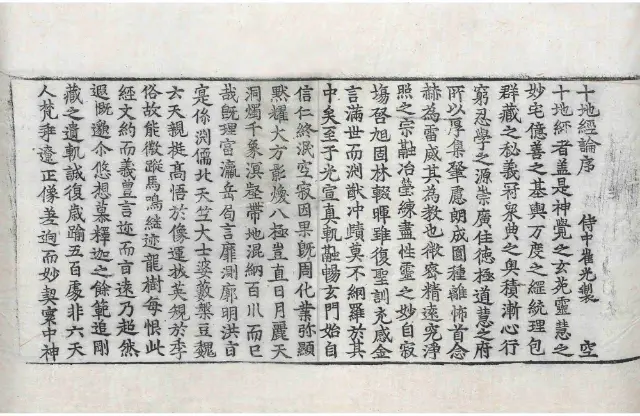 十地經論序　侍中崔光製　空
十地經者盖是神覺之玄苑靈慧之
妙宅億善之基輿万度之綱統理包
群藏之秘義冠衆典之奧積漸心行
窮忍學之源崇廣住德極道慧之府
所以厚集肇慮朗成圓種離怖首念
赫為雷威其為教也微密精遠究淨
照之宗融冶瑩練盡性靈之妙自寂
場啓旭固林輟暉雖復聖訓充感金
言滿世而淵猷沖賾莫不網羅於其
中矣至于光宣真軌融暢玄門始自
信仁終泯空寂因果旣周化業弥顯
默耀大方影煥八極豈直日月麗天
洞燭千象溟壑帶地混納百川而已
哉旣理富瀛岳局言靡測廓明洪旨
寔係淵儒北天竺大士婆藪槃豆魏
云天親挺高悟於像運拔英規於季
俗故能徽蹤馬鳴継迹龍樹每恨此
經文約而義豊言迩而旨遠乃超然
遐慨邈尒悠想慕釋迦之餘範追剛
藏之遺軌誠復歲踰五百處非六天
人梵乖遼正像差迥而妙契寰中神